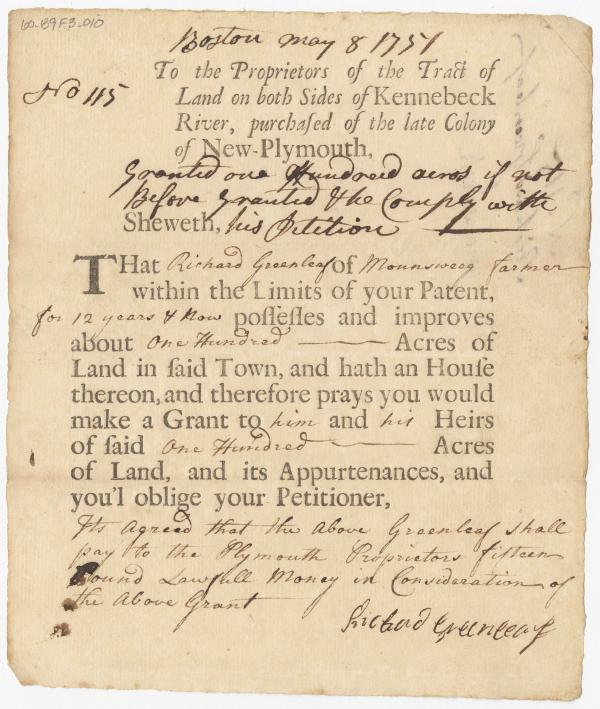 100-189.F.3-010
Boston may 8 1751
No 115
To the Proprietors of the Tract of
Land on both Sides of Kennebeck
River, purchaſed of the late Colony
of New-Plymouth,
Granted one Hundred acres if not
Before Granted & he Comply with
Sheweth, his Petition
THat Richard Greenleaf of Mounsweeg farmer
within the Limits of your Patent,
for 12 years & Now poſſeſſes and improves
about One Hundred Acres of
Land in ſaid Town, and hath an Houſe
thereon, and therefore prays you would
make a Grant to him and his Heirs
of ſaid One Hundred Acres
of Land, and its Appurtenances, and
you'l oblige your Petitioner,
Its Agreed that the Above Greenleaf shall
pay to the Plymouth Proprietors fifteen
Pound Lawfull Money in Consideration of
the Above Grant
Richard Greenleaf